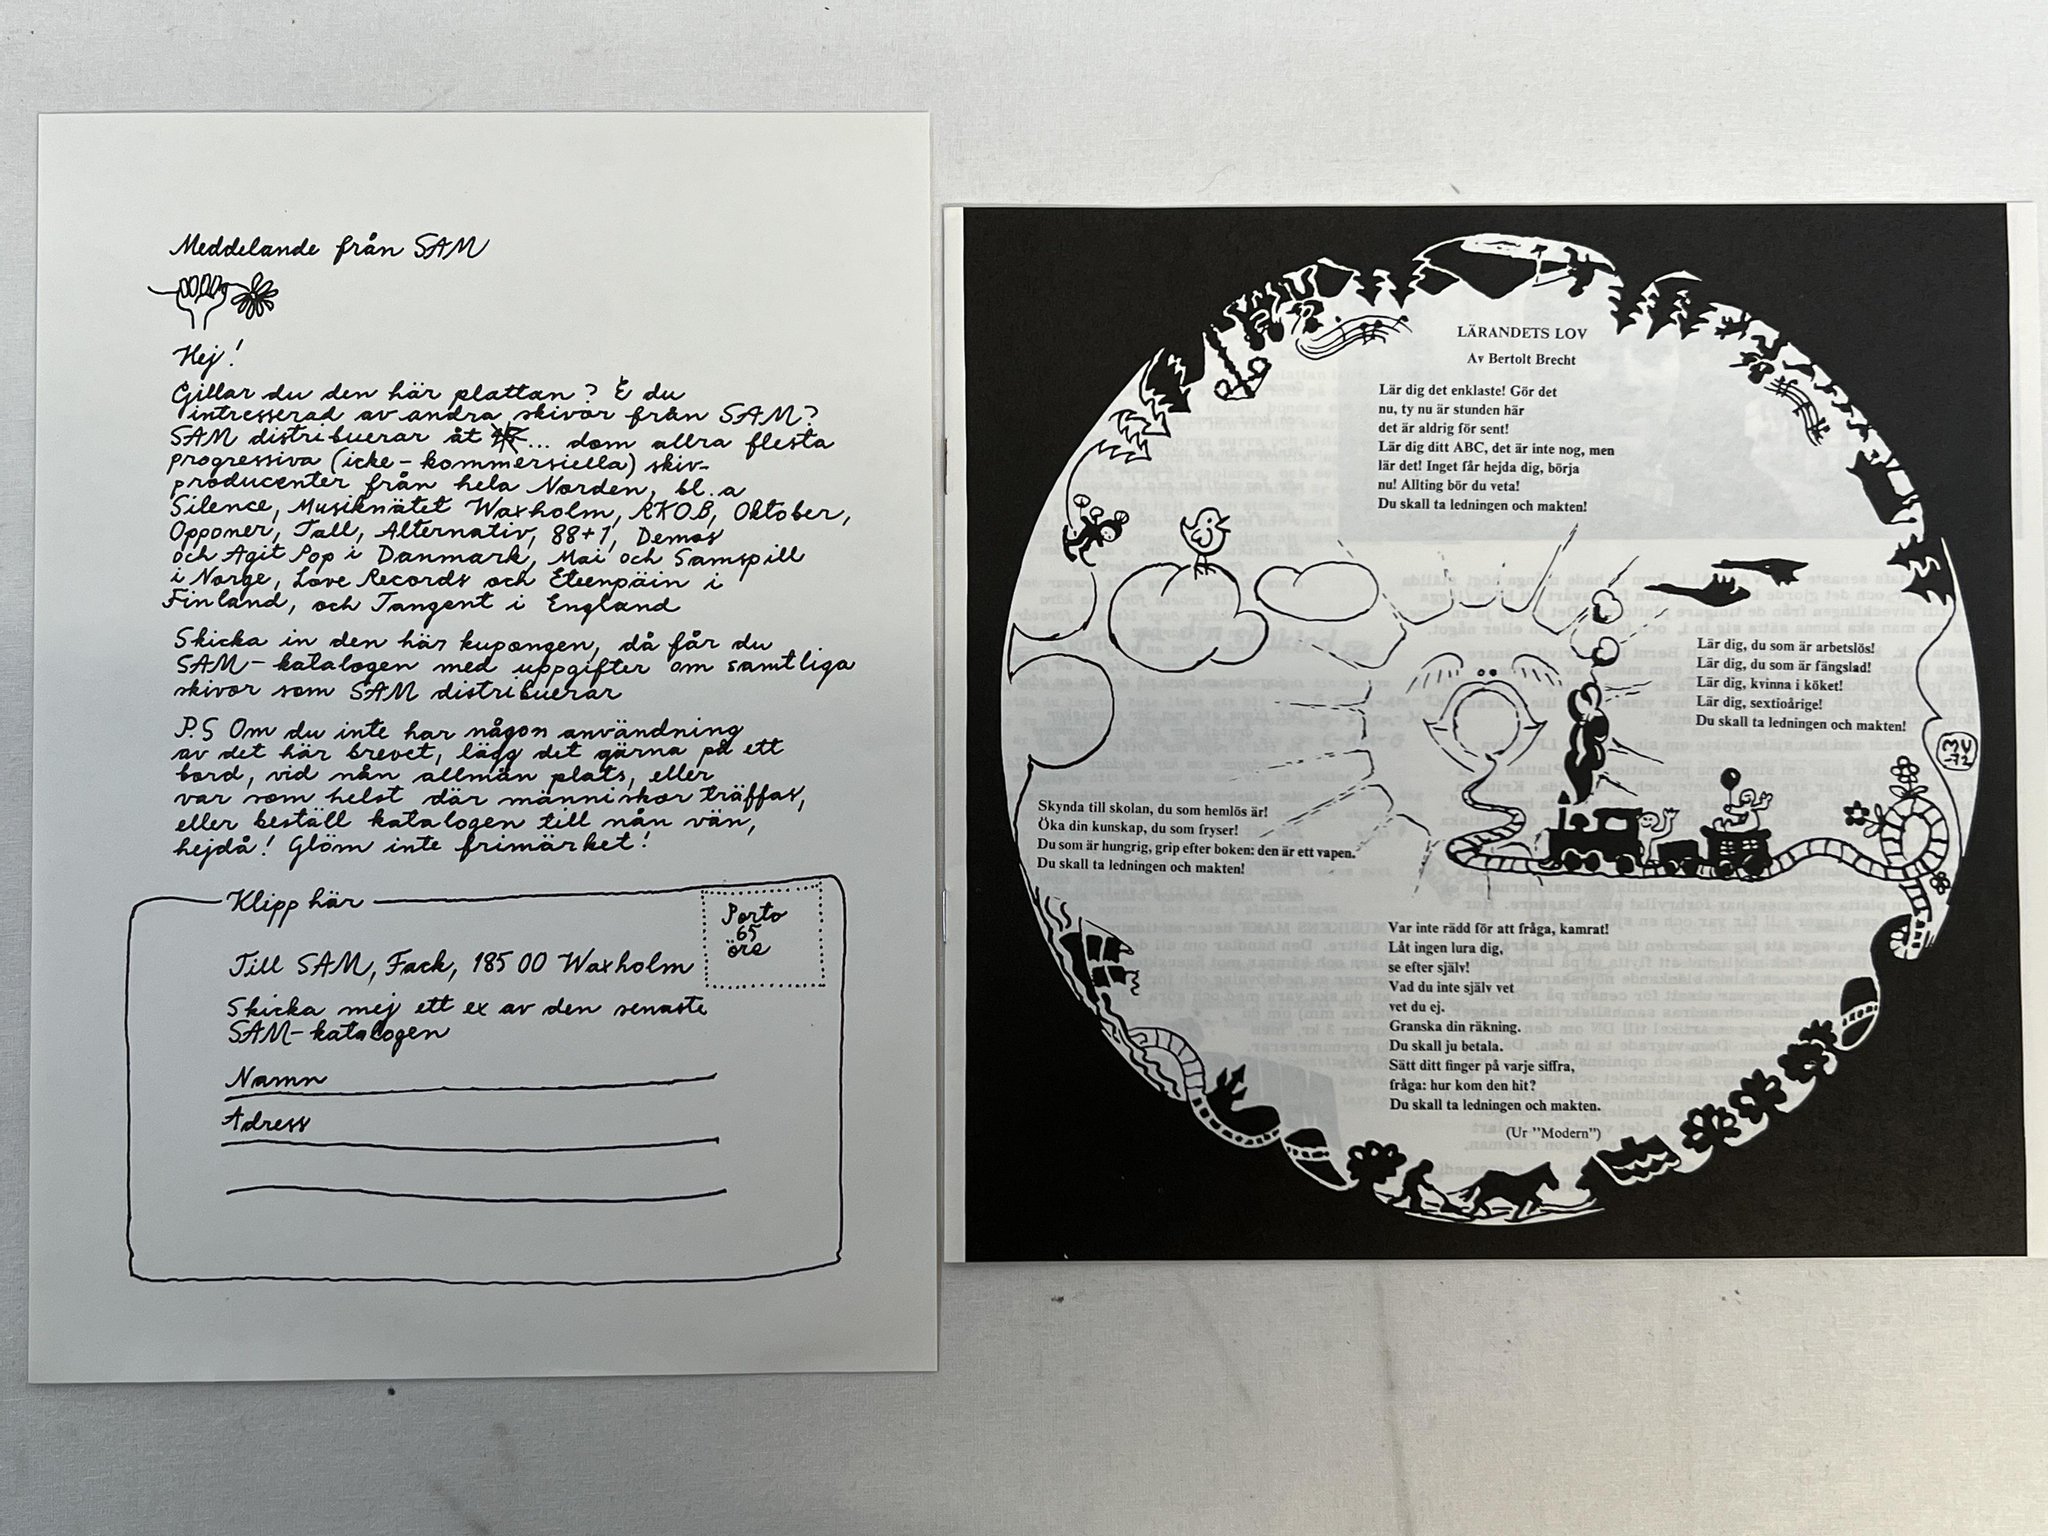 Meddelande från SAM
Hej!
Gillar du den här plattan? E du
intresserad av andra skivor från SAM?
SAM distribuerar åt ... dom allra flesta
progressiva (icke-kommersiella) skiv-
producenter från hela Norden, bl.a
Silence, Musiknätet Waxholm, RKOB, Oktober,
Opponer, Tall, Alternativ, 88+1, Demos
och Agit Pop i Danmark, Mai och Samspill
i Norge, Love Records och Eteenpäin i
Finland, och Tangent i England
Skicka in den här kupongen, då får du
SAM-katalogen med uppgifter om samtliga
skivor som SAM distribuerar
P.S Om du inte har någon användning
av det här brevet, lägg det gärna på ett
bord, vid nån allmän plats, eller
var som helst där människor träffas,
eller beställ katalogen till nån vän,
hejdå! Glöm inte frimärket!
Klipp här
Porto
65
öre
Till SAM, Fack, 185 00 Waxholm
Skicka mej ett ex av den senaste
SAM-katalogen
Namn
Adress
LÄRANDETS LOV
Av Bertolt Brecht
Lär dig det enklaste! Gör det
nu, ty nu är stunden här
det är aldrig för sent!
Lär dig ditt ABC, det är inte nog, men
lär det! Inget får hejda dig, börja
nu! Allting bör du veta!
Du skall ta ledningen och makten!
Lär dig, du som är arbetslös!
Lär dig, du som är fängslad!
Lär dig, kvinna i köket!
Lär dig, sextioårige!
Du skall ta ledningen och makten!
MV
-72
Skynda till skolan, du som hemlös är!
Öka din kunskap, du som fryser!
Du som är hungrig, grip efter boken: den är ett vapen.
Du skall ta ledningen och makten!
Var inte rädd för att fråga, kamrat!
Låt ingen lura dig,
se efter själv!
Vad du inte själv vet
vet du ej.
Granska din räkning.
Du skall ju betala.
Sätt ditt finger på varje siffra,
fråga: hur kom den hit?
Du skall ta ledningen och makten.
(Ur "Modern")